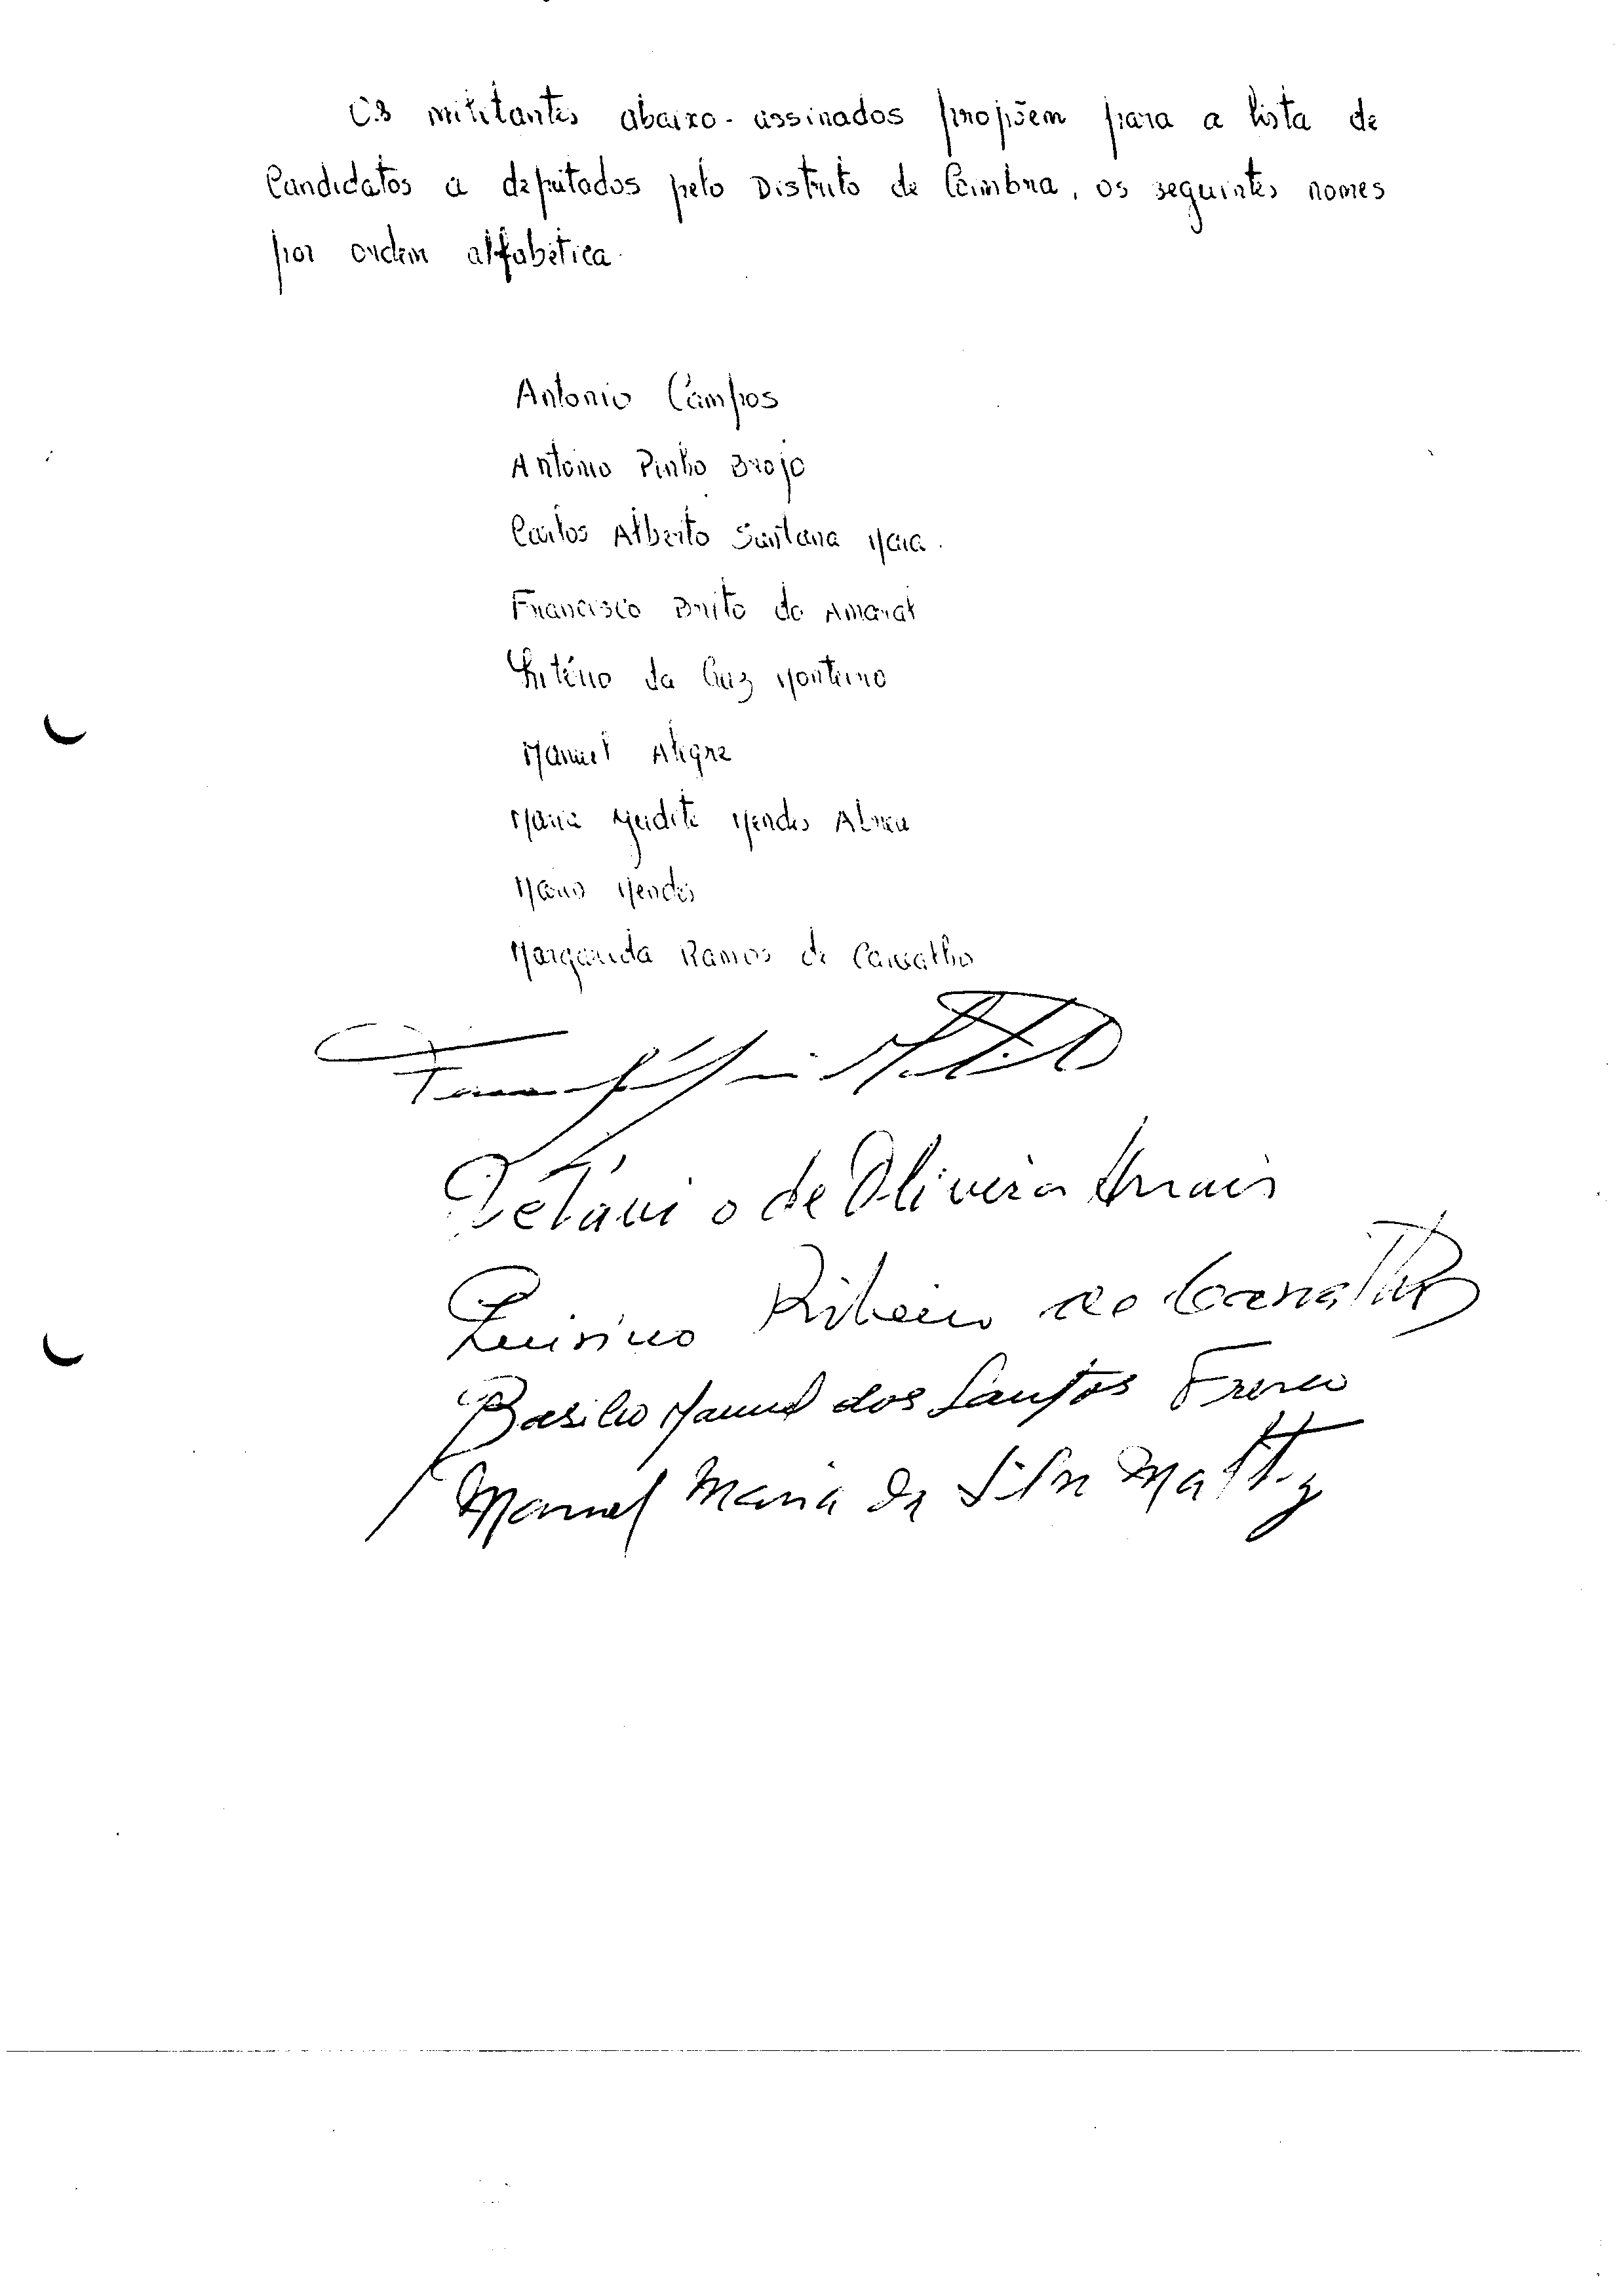 Os militantes abaixo-assinados propõem para a lista de
Candidatos a deputados pelo Distrito de Coimbra, os seguintes nomes
por ordem alfabética.
Antonio Campos
António Pinho Brojo
Carlos Alberto Santana Maia.
Francisco Brito do Amaral
da Cruz Monteiro
Manuel Alegre
Maria Judite Mendes Abreu
Mário Mendes
Margarida Ramos de Carvalho
Octávio de Oliveira Morais
Ribeiro de Carvalho
Basilio Manuel dos Santos
Manuel Maria da Silva